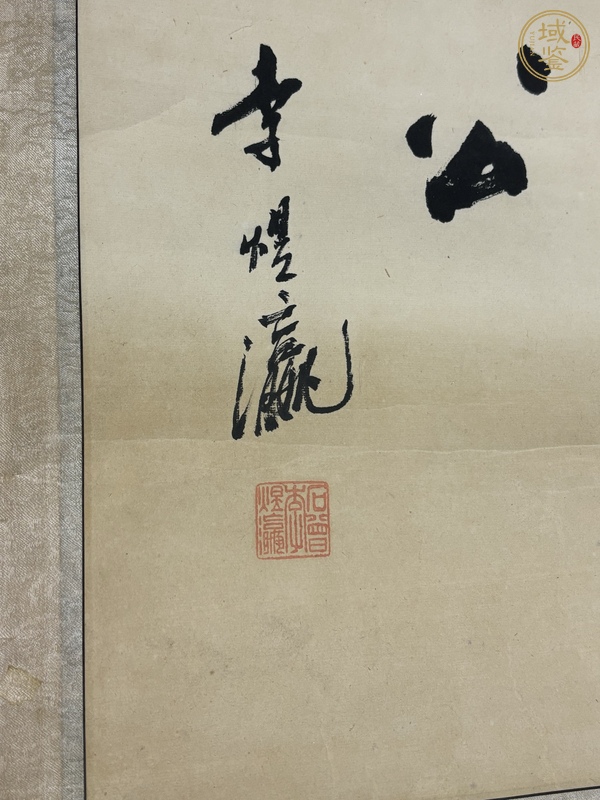 公
李煜瀛
石曾
李
煜瀛
域鉴